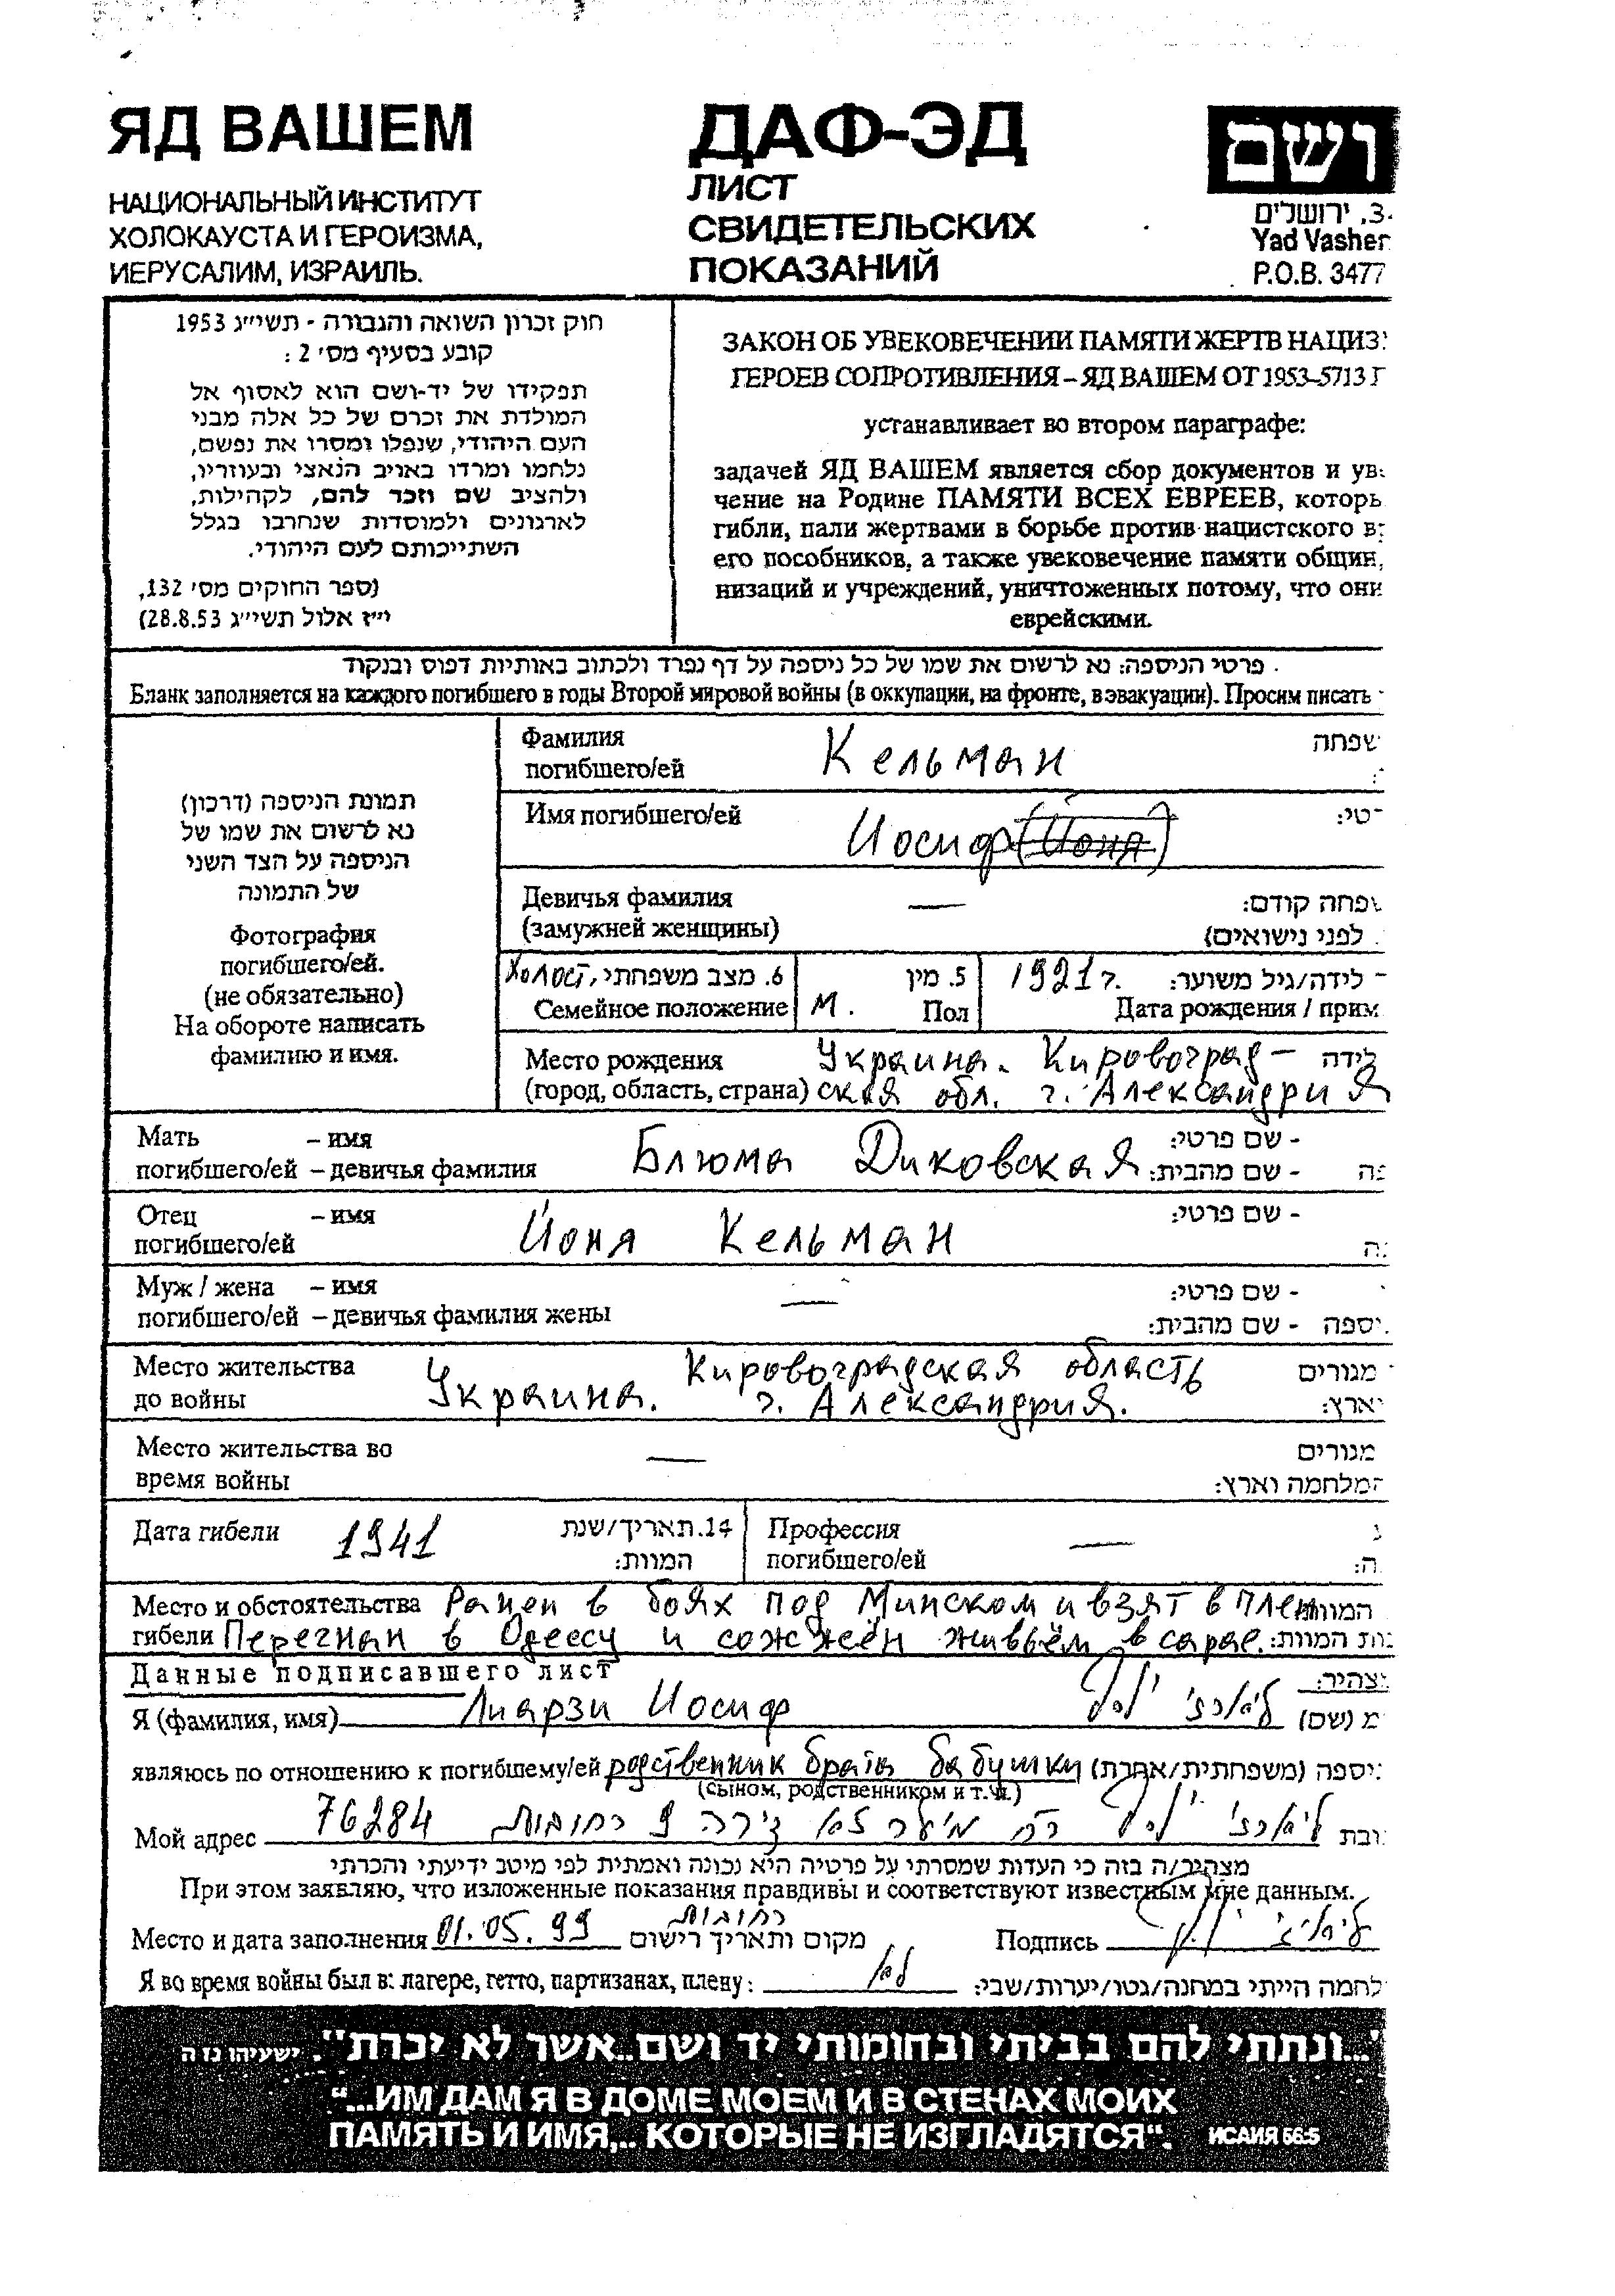 ЯД ВАШЕМ
НАЦИОНАЛЬНЫЙ ИНСТИТУТ
ХОЛОКАУСТА И ГЕРОИЗМА,
ИЕРУСАЛИМ, ИЗРАИЛЬ.
ДАФ-ЭД
ЛИСТ
СВИДЕТЕЛЬСКИХ
ПОКАЗАНИЙ
ושם
3, ירושלים
Yad Vashem
P.O.B. 3477
חוק זכרון השואה והגבורה - תשי״ג 1953
קובע בסעיף מס׳ 2 :
תפקידו של יד-ושם הוא לאסוף אל
המולדת את זכרם של כל אלה מבני
העם היהודי, שנפלו ומסרו את נפשם,
נלחמו ומרדו באויב הנאצי ובעוזריו,
ולהציב שם וזכר להם, לקהילות,
לארגונים ולמוסדות שנחרבו בגלל
השתייכותם לעם היהודי.
(ספר החוקים מס׳ 132,
י״ז אלול תשי״ג 28.8.53)
ЗАКОН ОБ УВЕКОВЕЧЕНИИ ПАМЯТИ ЖЕРТВ НАЦИЗ
ГЕРОЕВ СОПРОТИВЛЕНИЯ – ЯД ВАШЕМ ОТ 1953-5713 Г
устанавливает во втором параграфе:
задачей ЯД ВАШЕМ является сбор документов и ув
чение на Родине ПАМЯТИ ВСЕХ ЕВРЕЕВ, которь
гибли, пали жертвами в борьбе против нацистского в
его пособников, а также увековечение памяти общин,
низаций и учреждений, уничтоженных потому, что они
еврейскими.
פרטי הניספה: נא לרשום את שמו של כל ניספה על דף נפרד ולכתוב באותיות דפוס ובנקוד
Бланк заполняется на каждого погибшего в годы Второй мировой войны (в оккупации, на фронте, в эвакуации). Просим писать
תמונת הניספה (דרכון)
נא לרשום את שמו של
הניספה על הצד השני
של התמונה
Фотография
погибшего/ей.
(не обязательно)
На обороте написать
фамилию и имя.
Фамилия
погибшего/ей Кельман שפחה
Имя погибшего/ей Иосиф (Йоня) טי:
Девичья фамилия — פחה קודם:
(замужней женщины) לפני נישואים)
холост. 6. מצב משפחתי 5. מין 1921 г. לידה/גיל משוער:
Семейное положение М. Пол Дата рождения / прим
Место рождения Украина. Кировоград- לידה
(город, область, страна) ская обл. г. Александрия
Мать – имя - שם פרטי:
погибшего/ей – девичья фамилия Блюма Диковская - שם מהבית:
Отец – имя - שם פרטי:
погибшего/ей Йоня Кельман
Муж / жена – имя — - שם פרטי:
погибшего/ей – девичья фамилия жены יספה - שם מהבית:
Место жительства Кировоградская область מגורים
до войны Украина. г. Александрия. ארץ:
Место жительства во — מגורים
время войны המלחמה וארץ:
Дата гибели 1941 14. תאריך/שנת
המוות:
Профессия
погибшего/ей — ה:
Место и обстоятельства Ранен в боях под Минском и взят в плен המוות
гибели Перегнан в Одессу и сожжён живьём в сарае. ות המוות:
Данные подписавшего лист צהיר:
Я (фамилия, имя) Лиарзи Иосиф ליארזי יוסף (שם)
являюсь по отношению к погибшему/ей родственник брата бабушки יספה (משפחתית/אחרת)
(сыном, родственником и т.д.)
Мой адрес 76284 רחובות דירה 9 ליארזי יוסף ובת
מצהיר/ה בזה כי העדות שמסרתי על פרטיה היא נכונה ואמתית לפי מיטב ידיעתי והכרתי
При этом заявляю, что изложенные показания правдивы и соответствуют известным мне данным.
רחובות
Место и дата заполнения 01.05.99 מקום ותאריך רישום Подпись ליארזי יוסף
Я во время войны был в: лагере, гетто, партизанах, плену: לא לחמה הייתי במחנה/גטו/יערות/שבי:
"...ונתתי להם בביתי ובחומותי יד ושם..אשר לא יכרת". ישעיהו נז ה
“...ИМ ДАМ Я В ДОМЕ МОЕМ И В СТЕНАХ МОИХ
ПАМЯТЬ И ИМЯ,.. КОТОРЫЕ НЕ ИЗГЛАДЯТСЯ“. ИСАИЯ 56:5